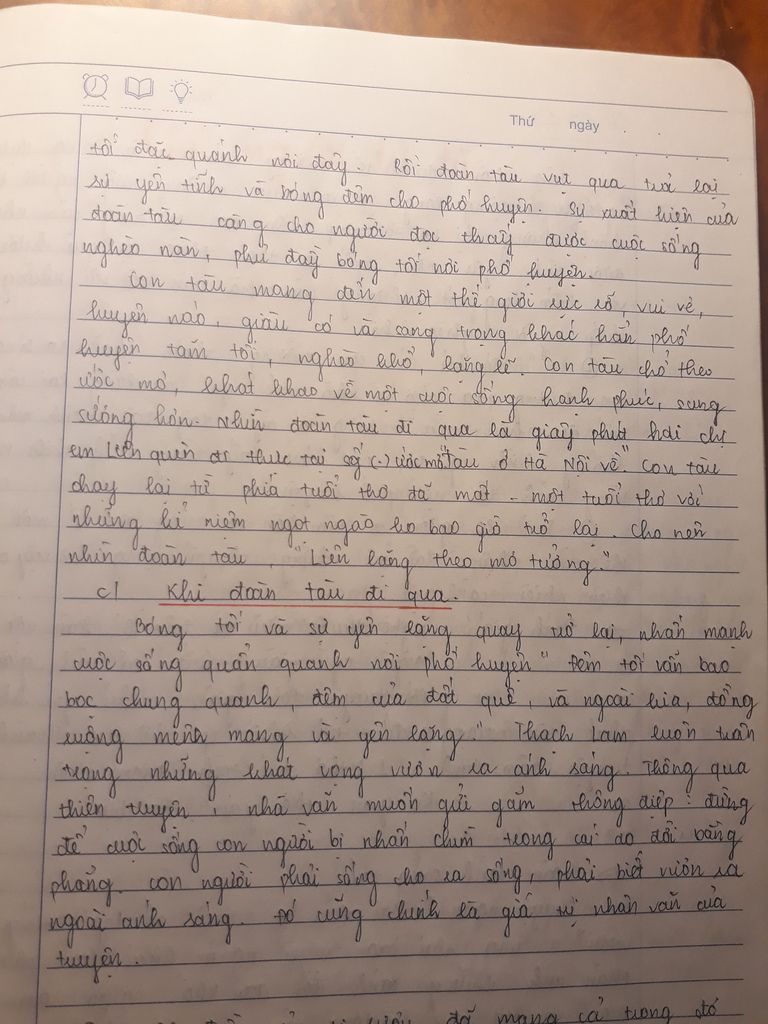 Thứ ngày
tối đặc quánh nơi đây. Rồi đoàn tàu vụt qua trả lại
sự yên tĩnh và bóng đêm cho phố huyện. Sự xuất hiện của
đoàn tàu càng cho người đọc thấy được cuộc sống
nghèo nàn, phủ đầy bóng tối nơi phố huyện.
Con tàu mang đến một thế giới rực rỡ, vui vẻ,
huyên náo, giàu có và sang trọng khác hẳn phố
huyện tăm tối, nghèo khổ, lặng lẽ. Con tàu chở theo
ước mơ, khát khao về một cuộc sống hạnh phúc, sung
sướng hơn. Nhìn đoàn tàu đi qua là giây phút hai chị
em Liên quên đi thực tại số (-) ước mơ tàu ở Hà Nội về". Con tàu
chạy lại từ phía tuổi thơ đã mất - một tuổi thơ với
những kỉ niệm ngọt ngào ko bao giờ trở lại. Cho nên
nhìn đoàn tàu, "Liên lặng theo mơ tưởng."
c/ Khi đoàn tàu đi qua.
Bóng tối và sự yên lặng quay trở lại, nhấn mạnh
cuộc sống quẩn quanh nơi phố huyện "Đêm tối vẫn bao
bọc chung quanh, đêm của đất quê, và ngoài kia, đồng
ruộng mênh mang và yên lặng." Thạch Lam luôn trân
trọng những khát vọng vươn ra ánh sáng. Thông qua
thiên truyện, nhà văn muốn gửi gắm thông điệp: đừng
để cuộc sống con người bị nhấn chìm trong cái ao đời bằng
phẳng. Con người phải sống cho ra sống, phải biết vươn ra
ngoài ánh sáng. Đó cũng chính là giá trị nhân văn của
truyện.
đã mang cả trong đó